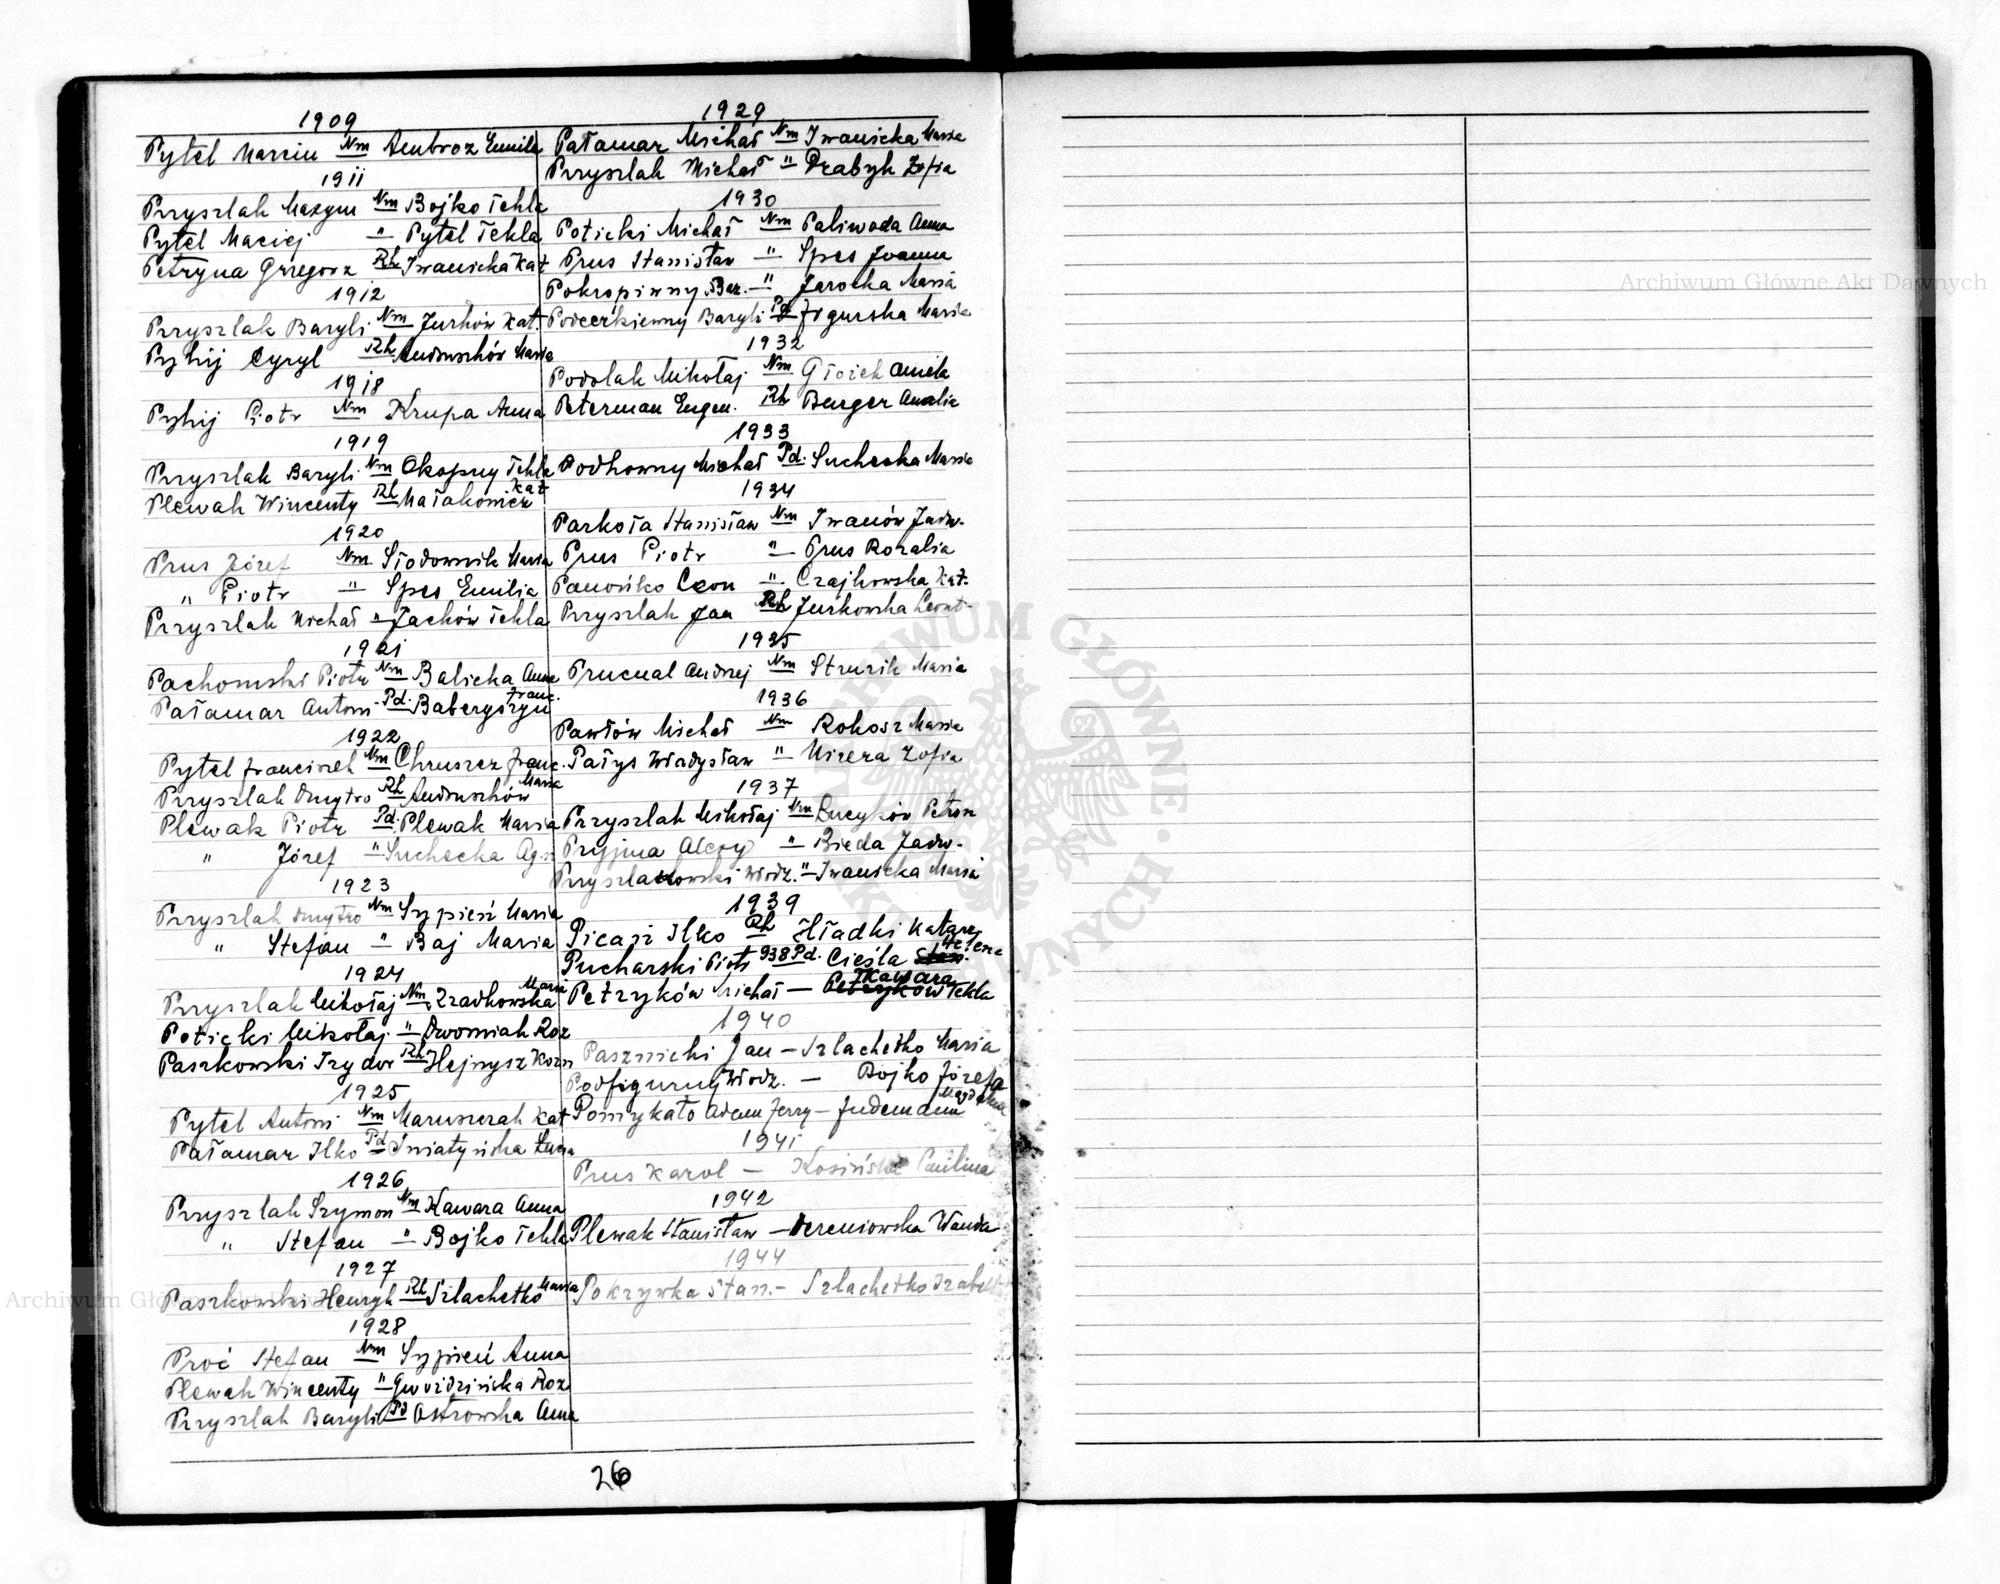 1909
Pytel Marcin Nm Ambroz Emilia
1911
Przyszlak Maxym Nm Bojko Tekla
Pytel Maciej " Pytel Tekla
Petryna Grzegorz Rh Iwanicka Kat
1912
Przyszlak Bazyli Nm Jurków Kat.
Pyhij Cyryl Rh Andruschów Maria
1918
Pyhij Piotr Nm Krupa Anna
1919
Przyszlak Bazyli Nm Okopny Tekla
Plewak Wincenty Rh Małakowicz Kat
1920
Prus Józef Nm Słodownik Maria
" Piotr " Spes Emilia
Przyszlak Michał " Jachów Tekla
1921
Pachomski Piotr Nm Balicka Anna
Pałamar Antoni Pd. Baberyszyn franc.
1922
Pytel franciszek Nm Chruszcz franc.
Przyszlak Dmytro Rh Andruschów Maria
Plewak Piotr Pd. Plewak Maria
" Józef " Suchecka Agn
1923
Przyszlak Dmytro Nm Szpień Maria
" Stefan " Baj Maria
1924
Przyszlak Mikołaj Nm Zradkowska Maria
Poticki Mikołaj " Dworniak Roz
Paszkowski Izydor Rh Hejnysz Korn
1925
Pytel Antoni Nm Maruszczak Kat
Pałamar Ilko Pd Światyńska Łucja
1926
Przyszlak Szymon Nm Kawara Anna
" Stefan " Bojko Tekla
1927
Paszkowski Henryk Rh Szlachetko Maria
1928
Proć Stefan Nm Szpień Anna
Plewak Wincenty " Gwoździńska Roz
Przyszlak Bazyli Pd Ostrowska Anna
1929
Pałamar Michał Nm Iwanicka Maria
Przyszlak Michał " Drabyk Zofia
1930
Poticki Michał Nm Paliwoda Anna
Prus Stanisław " Spes Joanna
Pokropiwny Baz. " Jarocka Maria
Podcerkiewny Bazyli Pd Zgurska Maria
1932
Podolak Mikołaj Nm Głozek Aniela
Peterman Eugen. Rh Berger Amalia
1933
Podhowny Michał Pd. Suchecka Maria
1934
Parkoła Stanisław Nm Iwanów Jadw.
Prus Piotr " Prus Rozalia
Panońko Leon " Czajkowska Kat.
Przyszlak Jan Rh Jurkowska Leont.
1935
Prucnal Andrzej Nm Struzik Maria
1936
Pawłów Michał Nm Rokosz Maria
Patys Władysław " Mizera Zofia
1937
Przyszlak Mikołaj Nm Bucyków Petron
Pryjma Alexy " Bieda Jadw.
Przyszlakowski Włodz. " Iwanicka Maria
1939
Picasz Ilko Rh Hładki Katarz
Pucharski Piotr 938 Pd. Cieśla Stan. Helena
Petryków Michał — Petryków Kawara Tekla
1940
Pasznicki Jan — Szlachetko Maria
Podfigurny Włodz. — Bojko Józefa
Pomykało Adam Jerzy — Judemann Magdalena
1941
Prus Karol — Kosińska Paulina
1942
Plewak Stanisław — Dereniowska Wanda
1944
Pokrywka Stan. — Szlachetko Izabela
26
Archiwum Główne Akt Dawnych